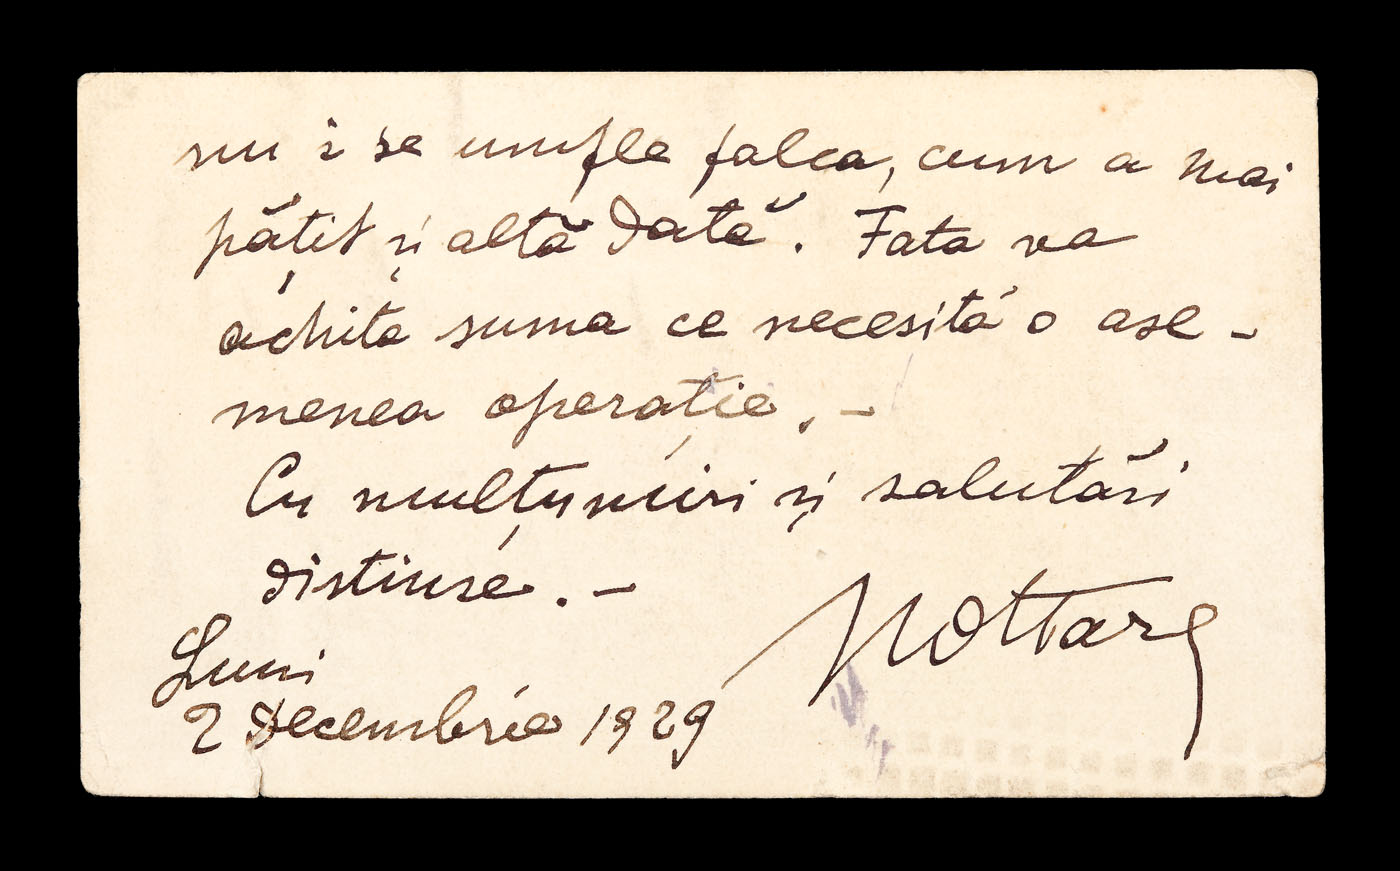 nu i se umfle falca, cum a mai
pățit și altă dată. Fata va
achita suma ce necesită o ase -
menea operație. -
Cu mulțumiri și salutări
distinse. -
Luni
2 Decembrie 1929
Nottara